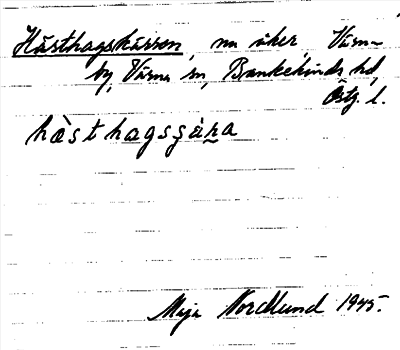 Hästhagskärren, nu åker, Värna
by, Värna sn, Bankekinds hd,
Östg. l.
hæ̀sthagsʂàṉa
Maja Nordlund 1945.